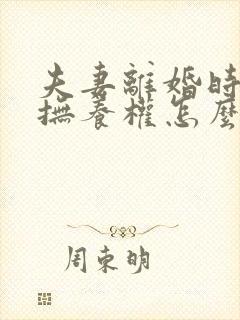 夫妻離婚時
撫養權怎麼
周東明